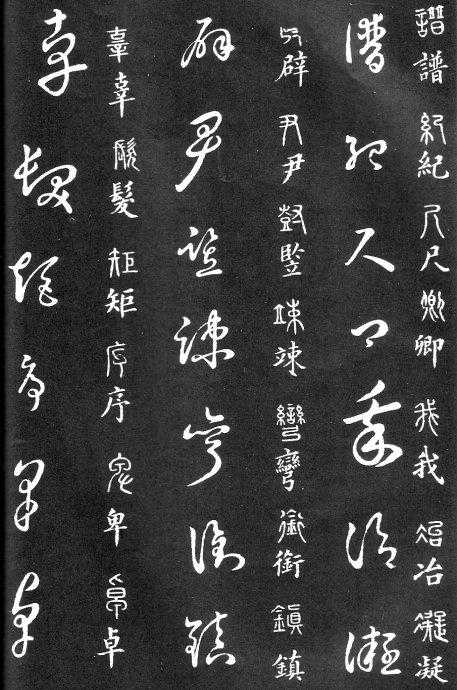 譜譜紀紀尺尺卿卿我我冶冶凝凝
譜紀尺卿我冶凝
辟辟尹尹豎豎竦竦彎彎銜銜鎮鎮
辟尹豎竦彎銜鎮
辜辜髮髮矩矩序序卑卑卓卓
辜髮矩序卑卓